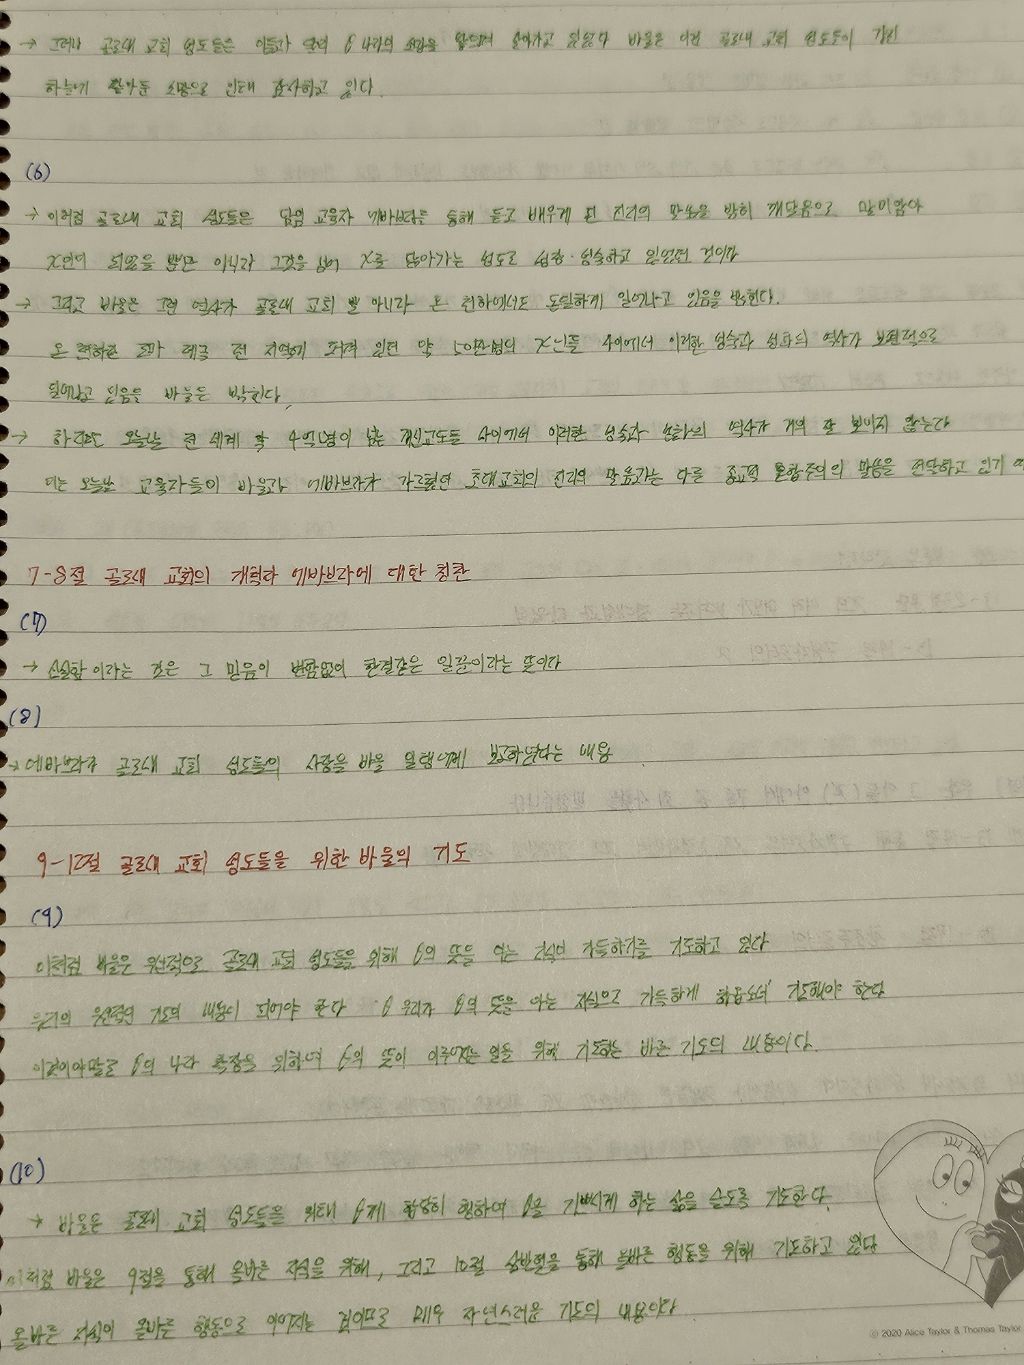 → 그러나 골로새 교회 성도들은 이들과 달리 θ 나라의 소망을 살아가고 있었다 바울은 이런 골로새 교회 성도들이 가진
하늘에 쌓아둔 소망으로 인해 감사하고 있다.
(6)
→ 이처럼 골로새 교회 성도들은 담임 교육자 에바브라를 통해 듣고 배우게 된 진리의 말씀을 밝히 깨달음으로 말미암아
X인이 되었을 뿐만 아니라 그것을 넘어 X를 닮아가는 성도로 성장·성숙하고 있었던 것이다
→ 그리고 바울은 그런 역사가 골로새 교회 뿐 아니라 온 천하에서도 동일하게 일어나고 있음을 밝힌다.
온 천하란 로마 제국 전 지역에 퍼져 있던 약 50만명의 X인들 사이에서 이러한 성숙과 성화의 역사가 보편적으로
일어나고 있음을 바울은 밝힌다.
→ 하지만 오늘날 전 세계 약 4억명이 넘는 개신교도들 사이에서 이러한 성숙과 성화의 역사가 거의 잘 보이지 않는다
이는 오늘날 교육자들이 바울과 에바브라가 가르쳤던 초대교회의 진리의 말씀과는 다른 종교적 혼합주의의 말씀을 전달하고 있기
7-8절 골로새 교회의 개척과 에바브라에 대한 칭찬
(7)
→ 신실함이라는 것은 그 믿음이 변함없이 한결같은 일꾼이라는 뜻이다
(8)
→ 에바브라가 골로새 교회 성도들의 사랑을 바울 일행에게 보고하였다는 내용
9-12절 골로새 교회 성도들을 위한 바울의 기도
(9)
이처럼 바울은 우선적으로 골로새 교회 성도들을 위해 θ의 뜻을 아는 지식이 가득하기를 기도하고 있다
우리의 우선적인 기도의 내용이 되어야 한다 θ 우리가 θ의 뜻을 아는 지식으로 가득하게 하옵소서' 기도해야 한다
이것이야말로 θ의 나라 확장을 위하여 θ의 뜻이 이루어지는 일을 위해 기도하는 바른 기도의 내용이다.
(10)
→ 바울은 골로새 교회 성도들을 위해 θ께 합당히 행하여 θ을 기쁘시게 하는 삶을 살도록 기도한다.
이처럼 바울은 9절을 통해 올바른 지식을 위해, 그리고 10절 상반절을 통해 올바른 행동을 위해 기도하고 있다
올바른 지식이 올바른 행동으로 이어지는 것이므로 매우 자연스러운 기도의 내용이다
© 2020 Alice Taylor & Thomas Taylor